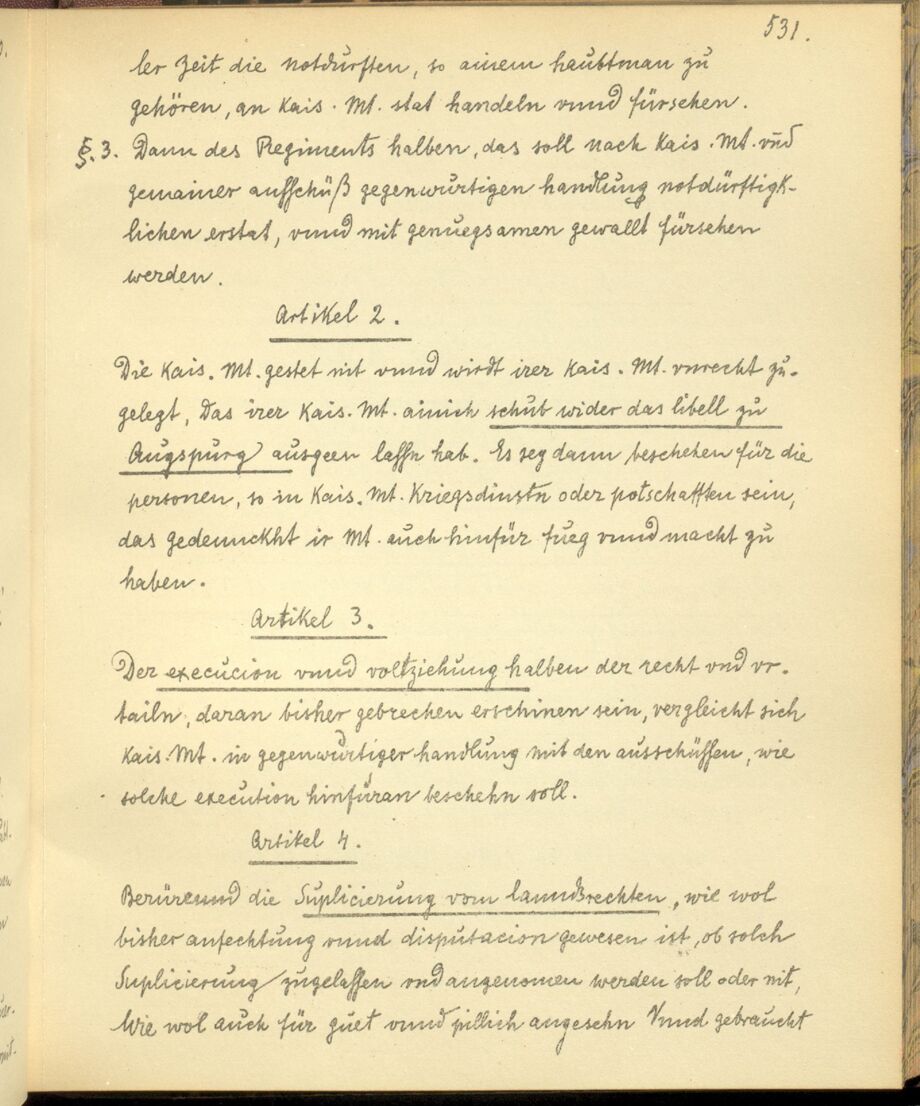 531.
ler Zeit die notdurften, so ainem haubtman zu
gehören, an Kais. Mt. stat handeln vnnd fürsehen.
§. 3. Dann des Regiments halben, das soll nach Kais. Mt. vnd
gemainer ausschüß gegenwurtigen handlung notdürftigk-
lichen erstat, vnnd mit genuegsamen gewallt fürsehen
werden.
Artikel 2.
Die Kais. Mt. gestet nit vnnd wirdt irer Kais. Mt. vnrecht zu-
gelegt, Das irer Kais. Mt. ainich schub wider das libell zu
Augspurg ausgeen lassn hab. Es sey dann beschehen für die
personen, so in Kais. Mt. Kriegsdinstn oder potschafften sein,
das gedennckht ir Mt. auch hinfür fueg vnnd macht zu
haben.
Artikel 3.
Der execucion vnnd voltziehung halben der recht vnd vr-
tailn, daran bisher gebrechen erschinen sein, vergleicht sich
Kais. Mt. in gegenwürtiger handlung mit den ausschüssen, wie
solche execution hinfüran beschehn soll.
Artikel 4.
Berürennd die Suplicierung vom lanndsrechten, wie wol
bisher anfechtung vnnd disputacion gewesen ist, ob solch
Suplicierung zugelassen vnd angenomen werden soll oder nit,
Wie wol auch für guet vnnd pillich angesehn Vnnd gebraucht